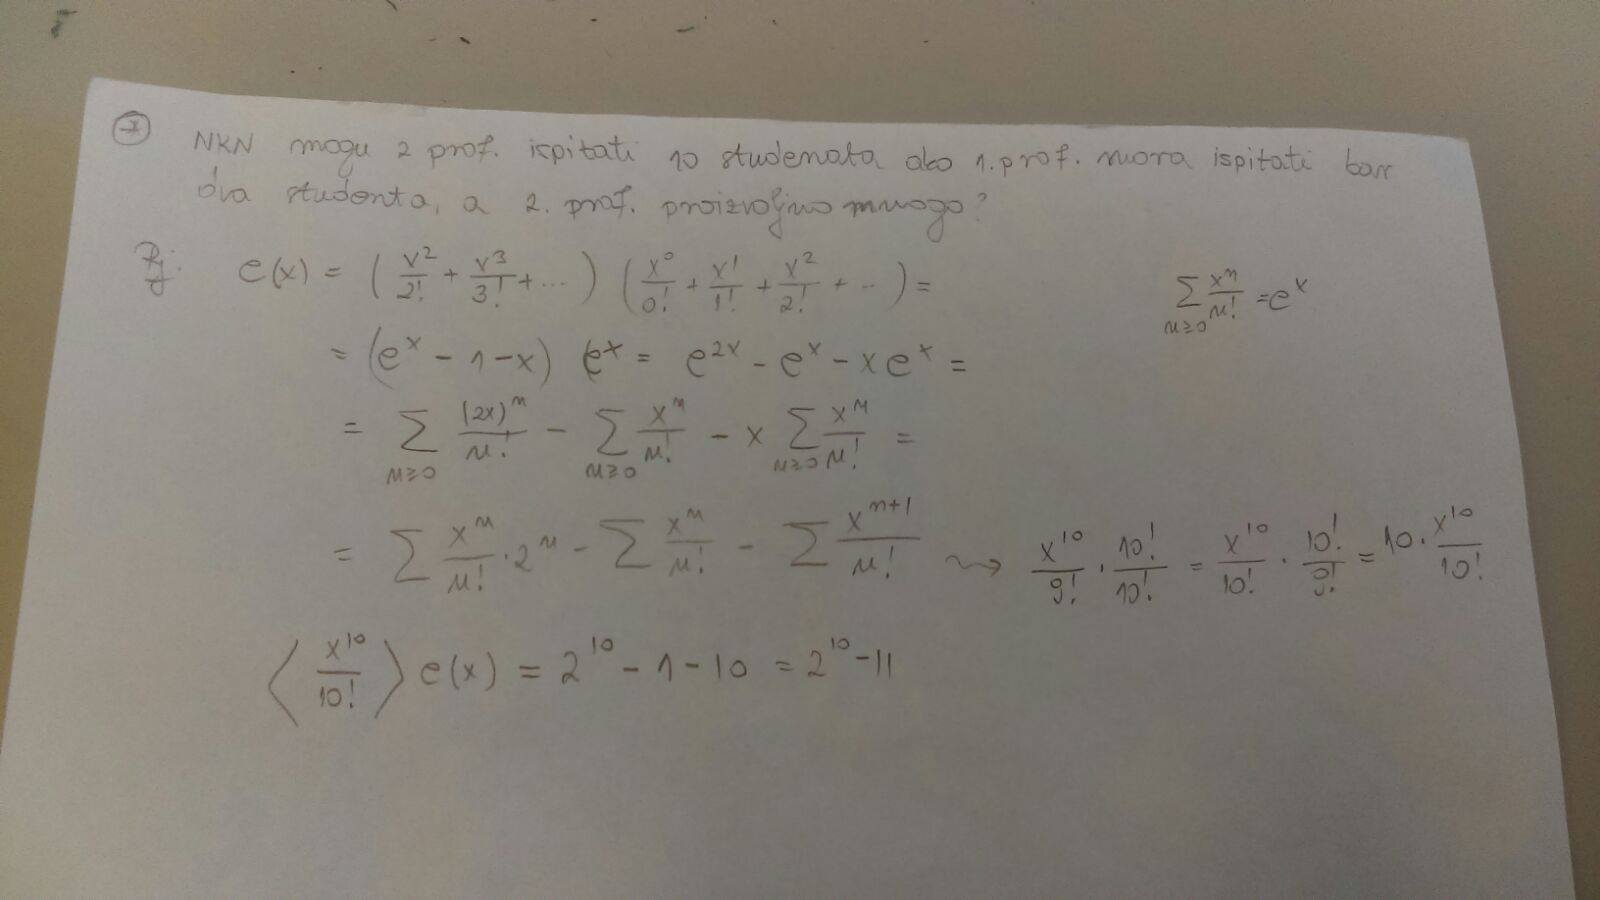 7 NKN mogu 2 prof. ispitati 10 studenata ako 1. prof. mora ispitati bar
dva studenta, a 2. prof. proizvoljno mnogo?
Rj. e(x) = (x²/2! + x³/3! + ...) (x⁰/0! + x¹/1! + x²/2! + ..) =
∑_{n≥0} xⁿ/n! = eˣ
= (eˣ - 1 - x) eˣ = e²ˣ - eˣ - x eˣ =
= ∑_{n≥0} (2x)ⁿ/n! - ∑_{n≥0} xⁿ/n! - x ∑_{n≥0} xⁿ/n! =
= ∑ xⁿ/n! · 2ⁿ - ∑ xⁿ/n! - ∑ xⁿ⁺¹/n! ⇝ x¹⁰/9! · 10!/10! = x¹⁰/10! · 10!/9! = 10 · x¹⁰/10!
⟨x¹⁰/10!⟩ e(x) = 2¹⁰ - 1 - 10 = 2¹⁰ - 11